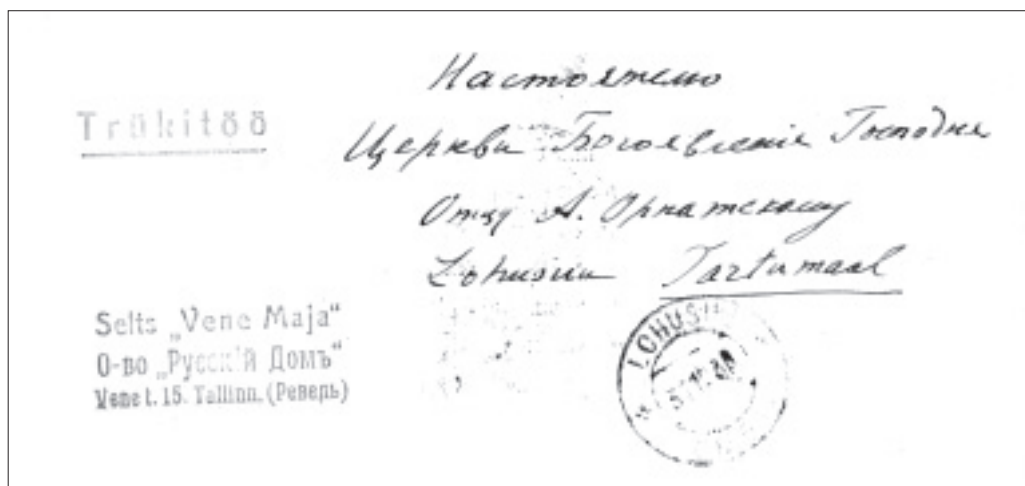 Trükitöö
Настоятелю
Церкви Богоявленія Господня
Отцу А. Орнатскому
Lohusuu Tartumaal
Selts „Vene Maja“
О-во „Русскій Домъ“
Vene t. 15. Tallinn. (Ревель)
LOHUSUU